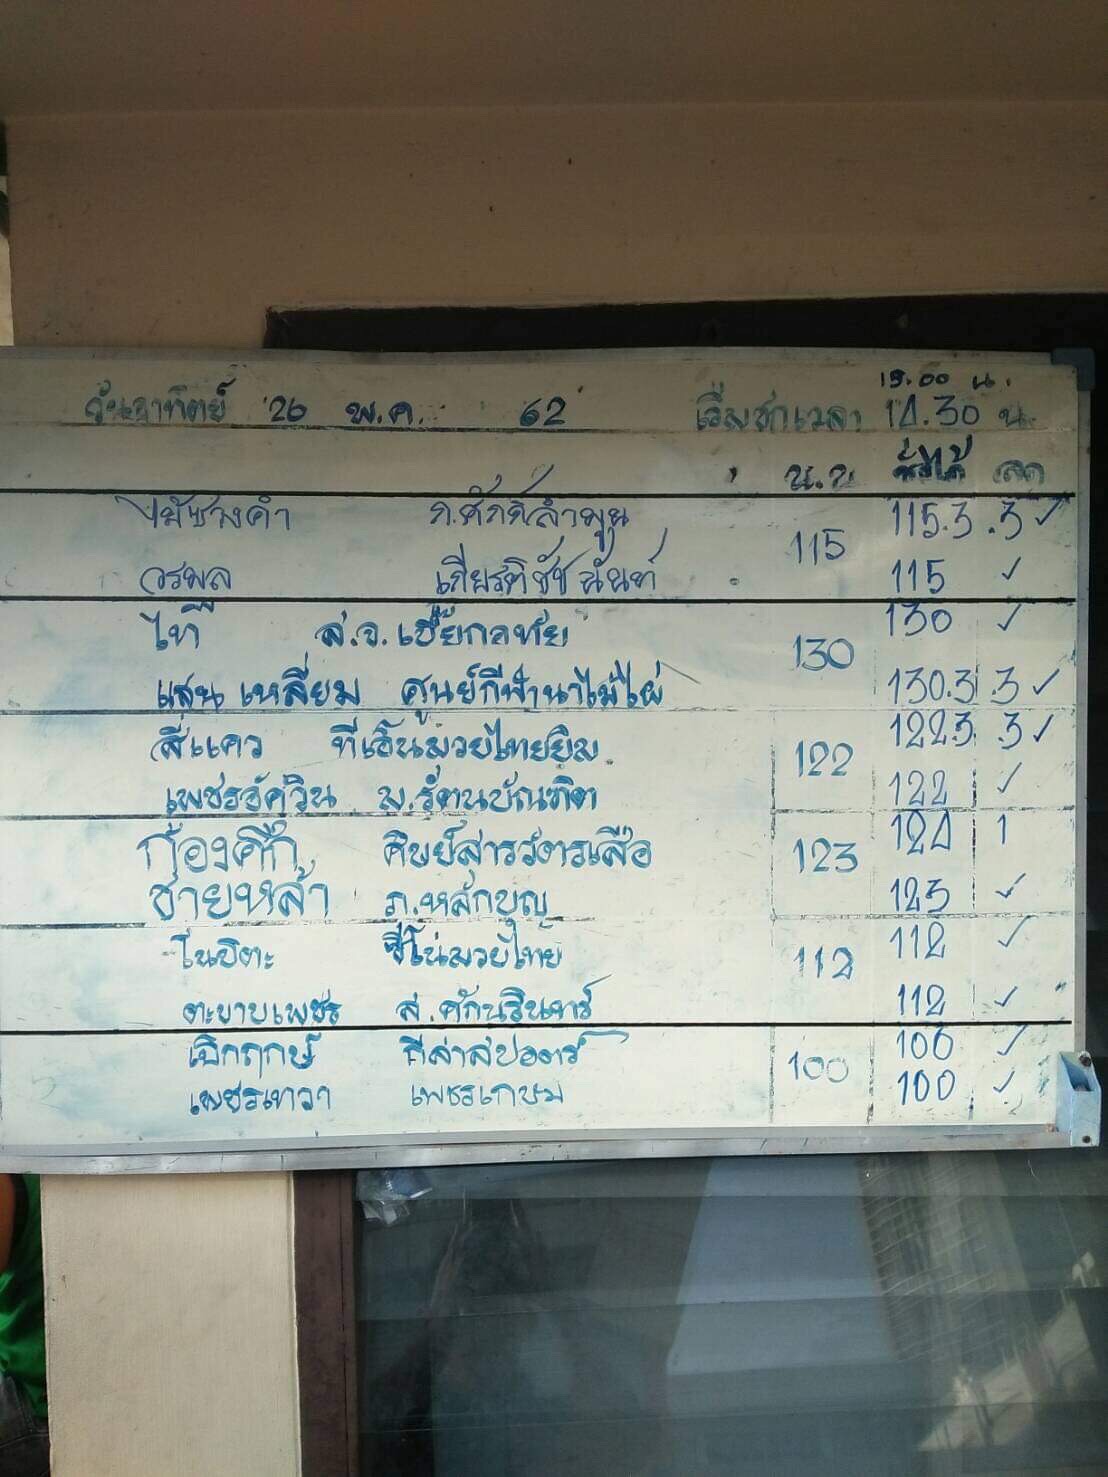 15.00 น.
วันอาทิตย์ 26 พ.ค. 62 เริ่มชกเวลา 14.30 น.
น.น ชั่งได้ ลด
ไม้ซางคำ ภ.ศักดิ์ลำพูน 115 115.3 .3 ✓
วรพล เกียรติชัชนันท์ 115 ✓
ไท ส.จ.เชี้ยกลทัย 130 130 ✓
แสนเหลี่ยม ศูนย์กีฬานาไม้ไผ่ 130.3 .3 ✓
สี่แคว ทีเอ็นมวยไทยยิม 122 122.3 .3 ✓
เพชรอัศวิน ม.รัตนบัณฑิต 122 ✓
ก้องศึก ศิษย์สารวัตรเสือ 123 124 1
ชายหล้า ภ.หลักบุญ 123 ✓
โนบิตะ ซีโน่มวยไทย 112 112 ✓
ตะบานเพชร ส.ศักนรินทร์ 112 ✓
เบิกฤกษ์ กีล่าสปอตร์ 100 100 ✓
เพชรเทวา เพชรเกษม 100 ✓